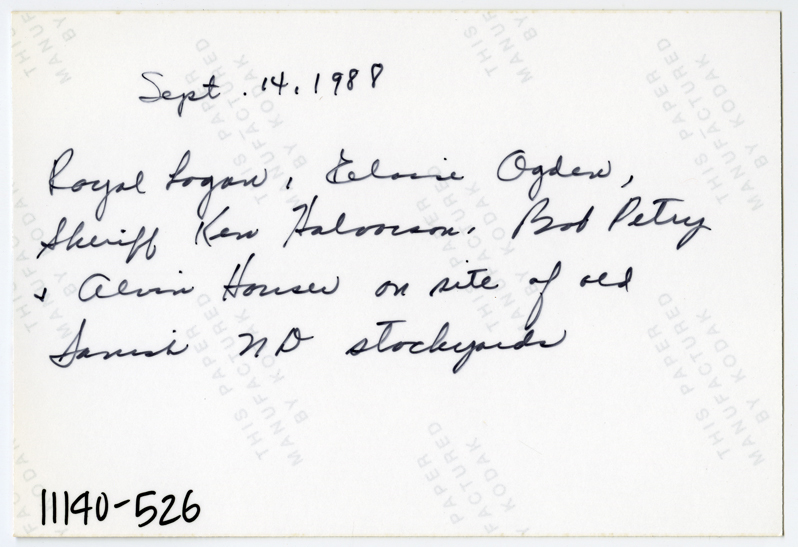 Sept. 14, 1988
Royal Logan, Eloise Ogden,
Sheriff Ken Halvorson, Bob Petry
& Alvin Houser on site of old
Sanish ND stockyards
11140-526
THIS PAPER
MANUFACTURED
BY KODAK